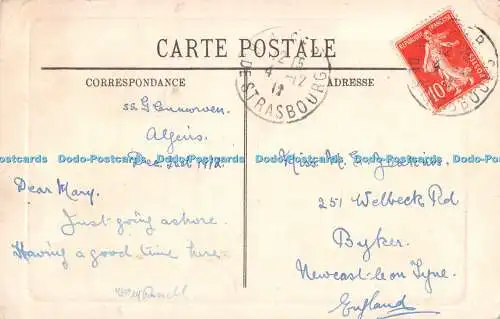 CARTE POSTALE
CORRESPONDANCE
ADRESSE
DE STRASBOURG
4 -12
REPUBLIQUE FRANÇAISE
POSTES
10
SS
Algiers.
Dec 1912.
Dear Mary.
Just going ashore.
Having a good time here.
Miss M.
251 Welbeck Rd
Byker.
Newcastle on Tyne.
England
Dodo-Postcards Dodo-Postcards Dodo-Postcards Dodo-Postcards Dodo-Postcards Dodo-Postcards